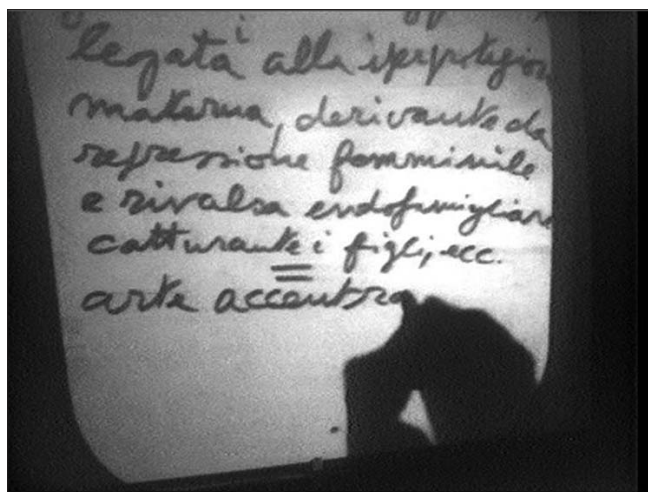 legata alla iperprotezion
materna, derivante da
repressione femminile
e rivalsa endofamigliare
catturante i figli, ecc.
arte accentra